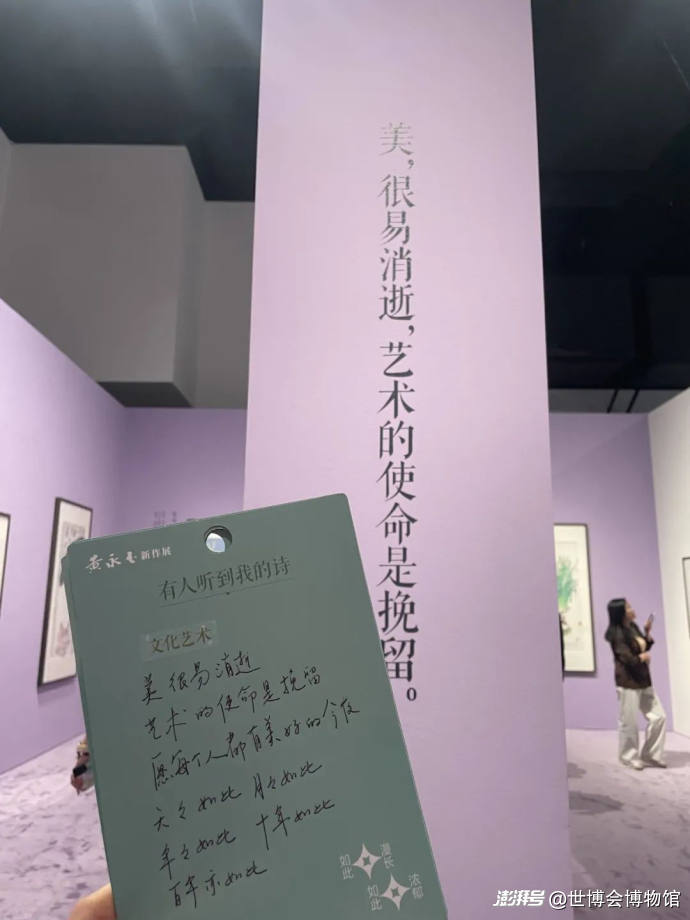 美，很易消逝，艺术的使命是挽留。
黄永玉 新作展
有人听到我的诗
文化艺术
美很易消逝
艺术的使命是挽留
愿每个人都有美好的今夜
天々如此 月々如此
年々如此 十年如此
百年亦如此
如此 漫长
如此 浓郁
澎湃号 @世博会博物馆